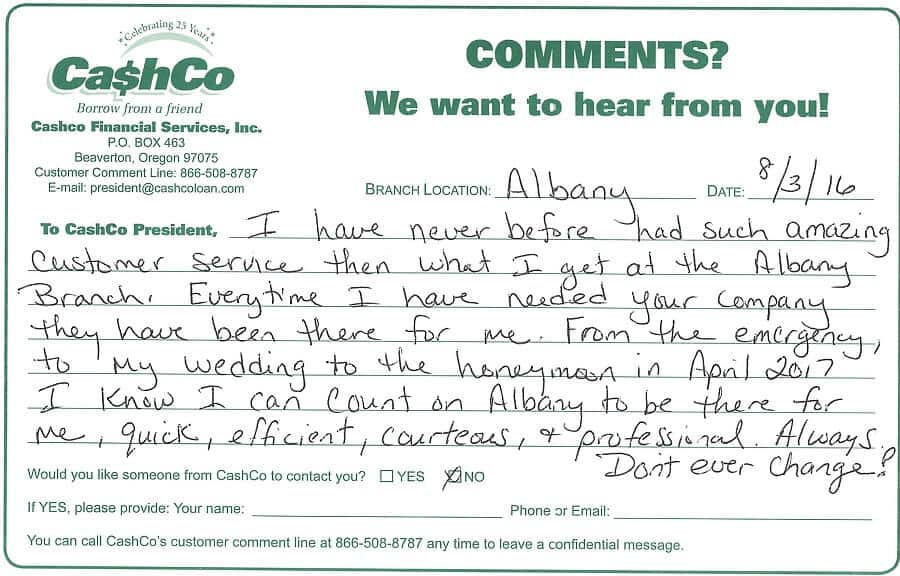 Celebrating 25 Years
Ca$hCo
Borrow from a friend
Cashco Financial Services, Inc.
P.O. BOX 463
Beaverton, Oregon 97075
Customer Comment Line: 866-508-8787
E-mail: president@cashcoloan.com
COMMENTS?
We want to hear from you!
BRANCH LOCATION: Albany DATE: 8/3/16
To CashCo President, I have never before had such amazing
Customer service then what I get at the Albany
Branch. Everytime I have needed your company
they have been there for me. From the emergency,
to my wedding to the honeymoon in April 2017
I know I can count on Albany to be there for
me, quick, efficient, courteous, & professional. Always.
Don't ever change!
Would you like someone from CashCo to contact you? YES NO
If YES, please provide: Your name: Phone or Email:
You can call CashCo's customer comment line at 866-508-8787 any time to leave a confidential message.